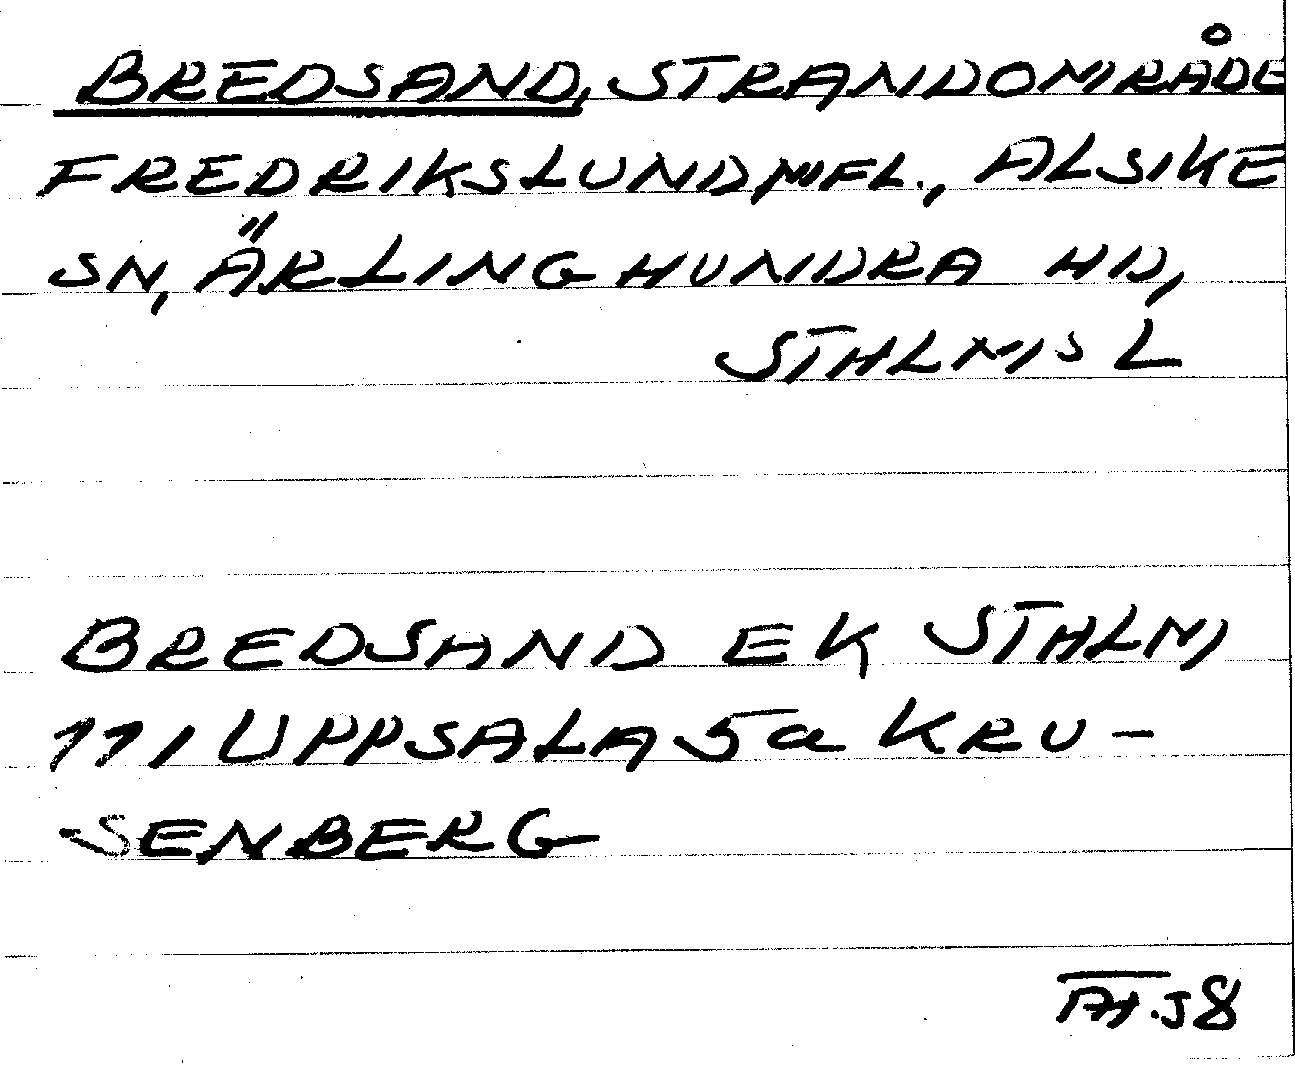 BREDSAND, STRANDOMRÅDE
FREDRIKSLUND M FL., ALSIKE
SN, ÄRLINGHUNDRA HD,
STHLMS L
BREDSAND EK STHLM
11I UPPSALA 5a KRU-
SENBERG